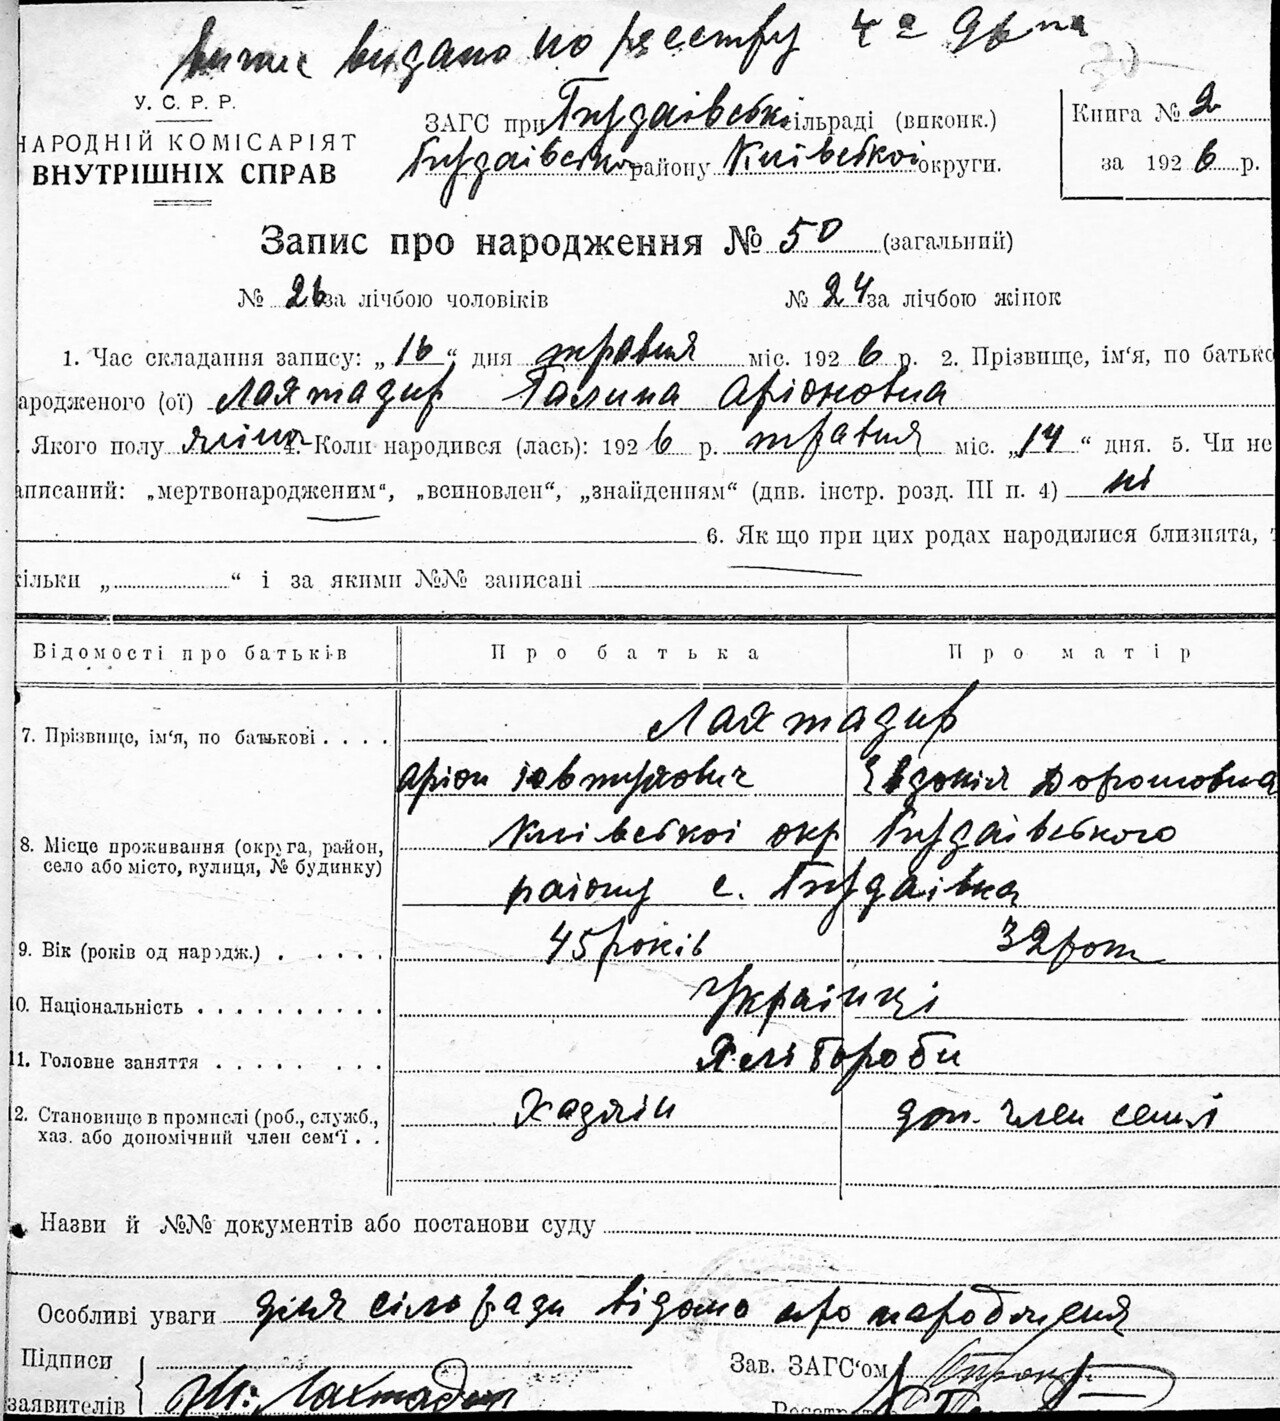 витяг видано по реєстру
У. С. Р. Р.
НАРОДНІЙ КОМІСАРІЯТ
ВНУТРІШНІХ СПРАВ
ЗАГС при Бурдаївській сільраді (виконк.)
Бурдаївського району Київської округи.
Книга № 2
за 1926 р.
Запис про народження № 50 (загальний)
№ 26 за лічбою чоловіків № 24 за лічбою жінок
1. Час складання запису: „16“ дня травня міс. 1926 р. 2. Прізвище, ім‘я, по батько
ародженого (ої) Лахтадир Галина Аріоновна
. Якого полу жіноч 4. Коли народився (лась): 1926 р. травня міс. „14“ дня. 5. Чи не
аписаний: „мертвонародженим“, „всиновлен“, „знайденням“ (див. інстр. розд. III п. 4) ні
6. Як що при цих родах народилися близнята,
ільки „ “ і за якими №№ записані
Відомості про батьків Про батька Про матір
7. Прізвище, ім‘я, по батькові . . . . Лахтадир
Аріон Евдокія Дорошовна
8. Місце проживання (округа, район, село або місто, вулиця, № будинку) Київської окр Бурдаївського
району с. Бурдаївка
9. Вік (років од народж.) . . . . . . 45 років 32 рок
10. Національність . . . . . . . . . . Українці
11. Головне заняття . . . . . . . . Хлібороби
12. Становище в промислі (роб., служб., хаз. або допомічний член сем‘ї . . Хазяїн доп. член семї
Назви й №№ документів або постанови суду
Особливі уваги для сільради відомо про народження
Підписи
заявителів
Лахтадир
Зав. ЗАГС‘ом